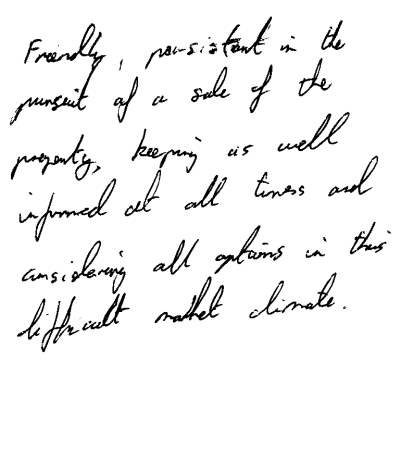 Friendly, persistent in the
pursuit of a sale of the
property, keeping us well
informed at all times and
considering all options in this
difficult market climate.